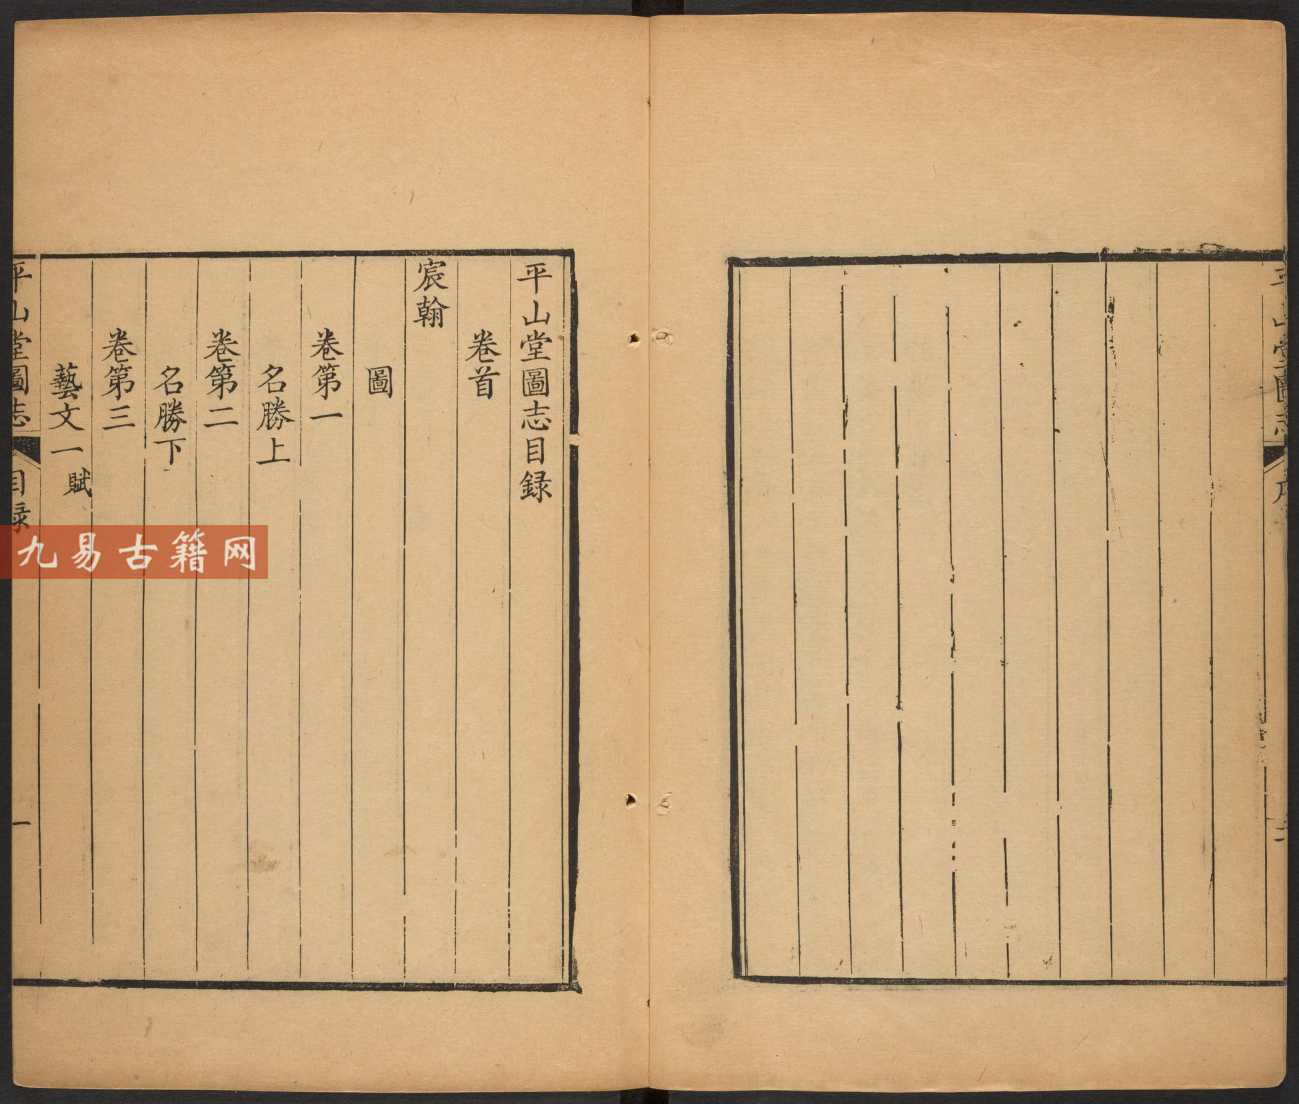 平山堂圖志
序
二
平山堂圖志目録
卷首
宸翰
圖
卷第一
名勝上
卷第二
名勝下
卷第三
藝文一 賦
平山堂圖志
目録
一
九易古籍网